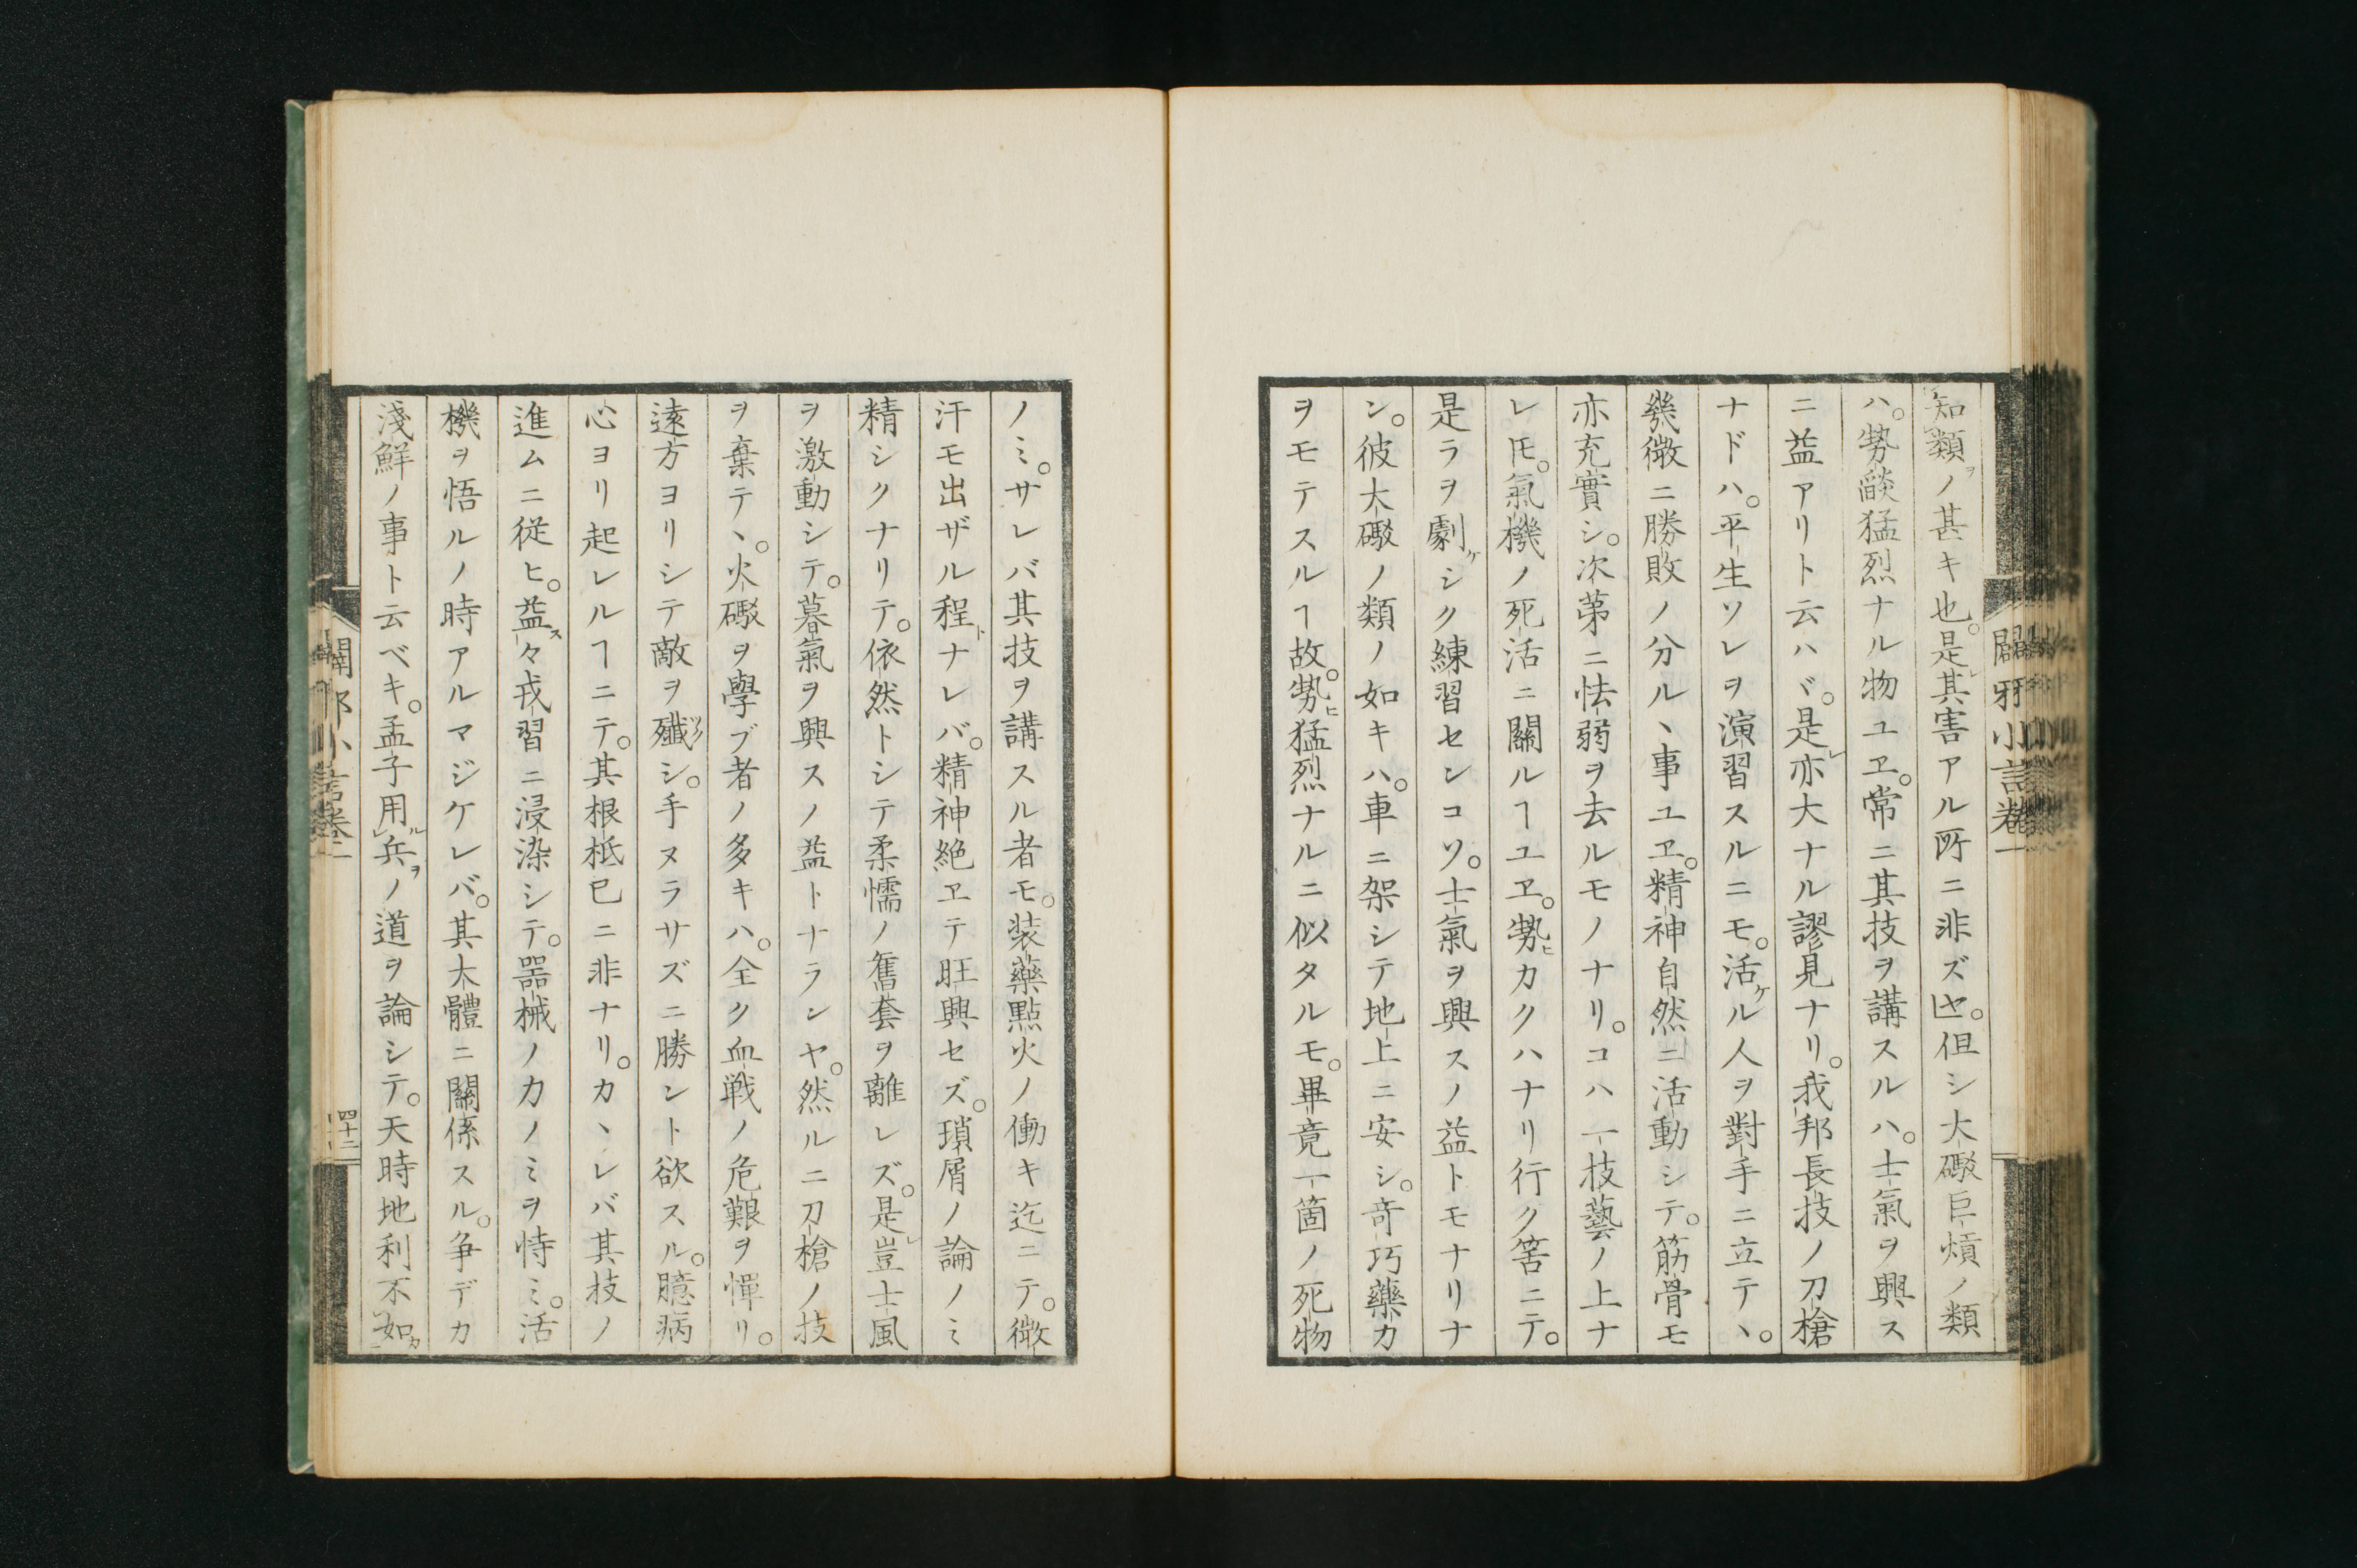 知類ノ甚キ也。是レ其害アル所ニ非ズヤ。但シ大礮巨熕ノ類
ハ。勢燄猛烈ナル物ユヱ。常ニ其技ヲ講スルハ。士氣ヲ興ス
ニ益アリト云ハヾ。是レ亦大ナル謬見ナリ。我邦長技ノ刀槍
ナドハ。平生ソレヲ演習スルニモ。活ケル人ヲ對手ニ立テヽ。
幾微ニ勝敗ノ分ルヽ事ユヱ。精神自然ニ活動シテ。筋骨モ
亦充實シ。次第ニ怯弱ヲ去ルモノナリ。コハ一技藝ノ上ナ
レ𪜈。氣機ノ死活ニ關ルヿユヱ。勢ヒカクハナリ行ク筈ニテ。
是ラヲ劇ケシク練習センコソ。士氣ヲ興スノ益トモナリナ
ン。彼大礮ノ類ノ如キハ。車ニ架シテ地上ニ安シ。奇巧藥力
ヲモテスルヿ故。勢ヒ猛烈ナルニ似タルモ。畢竟一箇ノ死物
ノミ。サレバ其技ヲ講スル者モ。装藥點火ノ働キ迄ニテ。微
汗モ出ザル程トナレバ。精神絶ヱテ旺興セズ。瑣屑ノ論ノミ
精シクナリテ。依然トシテ柔懦ノ舊套ヲ離レズ。是レ豈士風
ヲ激動シテ。暮氣ヲ興スノ益トナランヤ。然ルニ刀槍ノ技
ヲ棄テヽ。火礮ヲ學ブ者ノ多キハ。全ク血戦ノ危艱ヲ憚リ。
遠方ヨリシテ敵ヲ殲ツクシ。手ヌラサズニ勝ント欲スル。臆病
心ヨリ起レルヿニテ。其根柢已ニ非ナリ。カヽレバ其技ノ
進ムニ従ヒ。益ス々戎習ニ浸染シテ。器械ノカノミヲ恃ミ。活
機ヲ悟ルノ時アルマジケレバ。其大體ニ關係スル。争デカ
淺鮮ノ事ト云ベキ。孟子用ルレ兵ヲノ道ヲ論シテ。天時地利不如カ
闢邪小言卷二
四十二